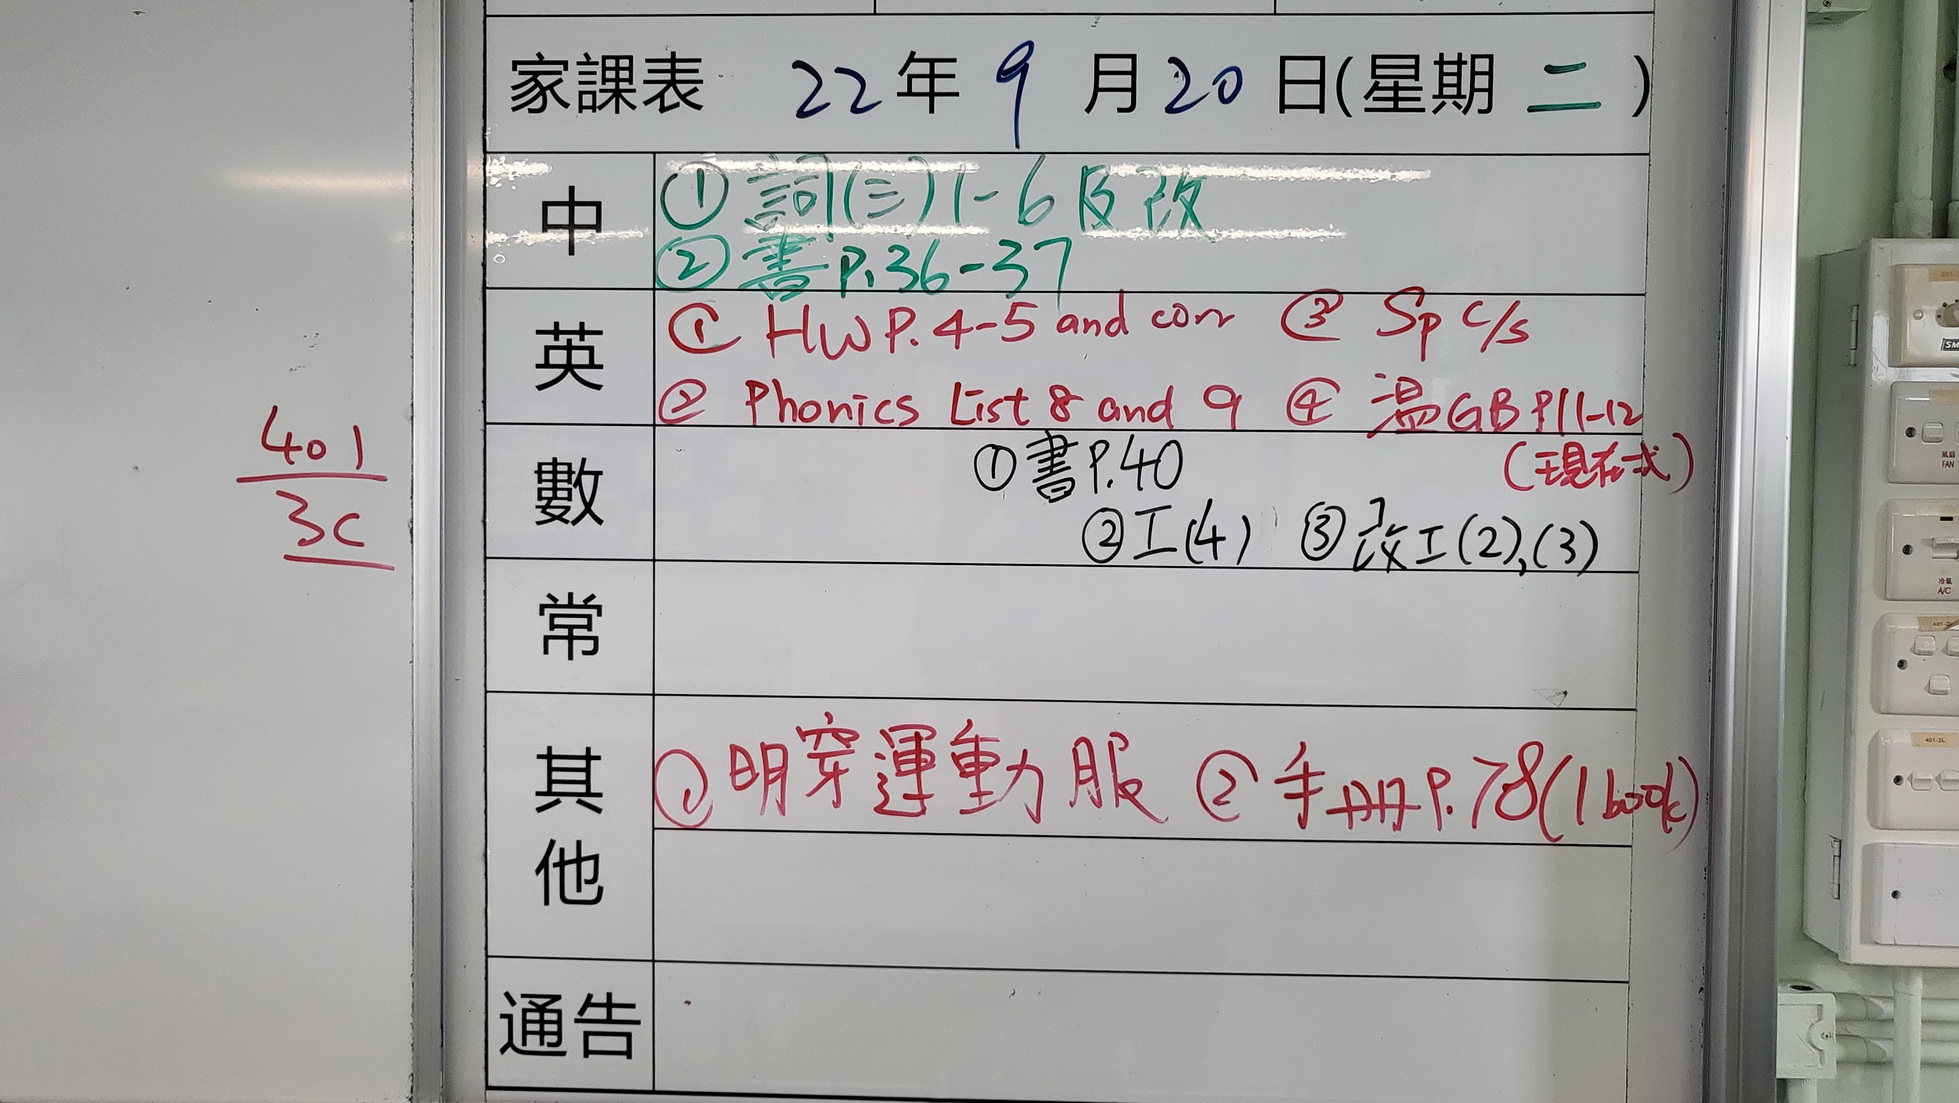 家課表 22年 9月20日(星期二)
中
①詞(三)1-6及改
②書P.36-37
英
① HW P.4-5 and corr ③ Sp c/s
② Phonics List 8 and 9 ④ 溫GB P11-12
(現在式)
數
①書P.40
②工(4) ③改工(2),(3)
常
其他
①明穿運動服 ②手冊P.78(1 book)
通告
401
3C
FAN
A/C